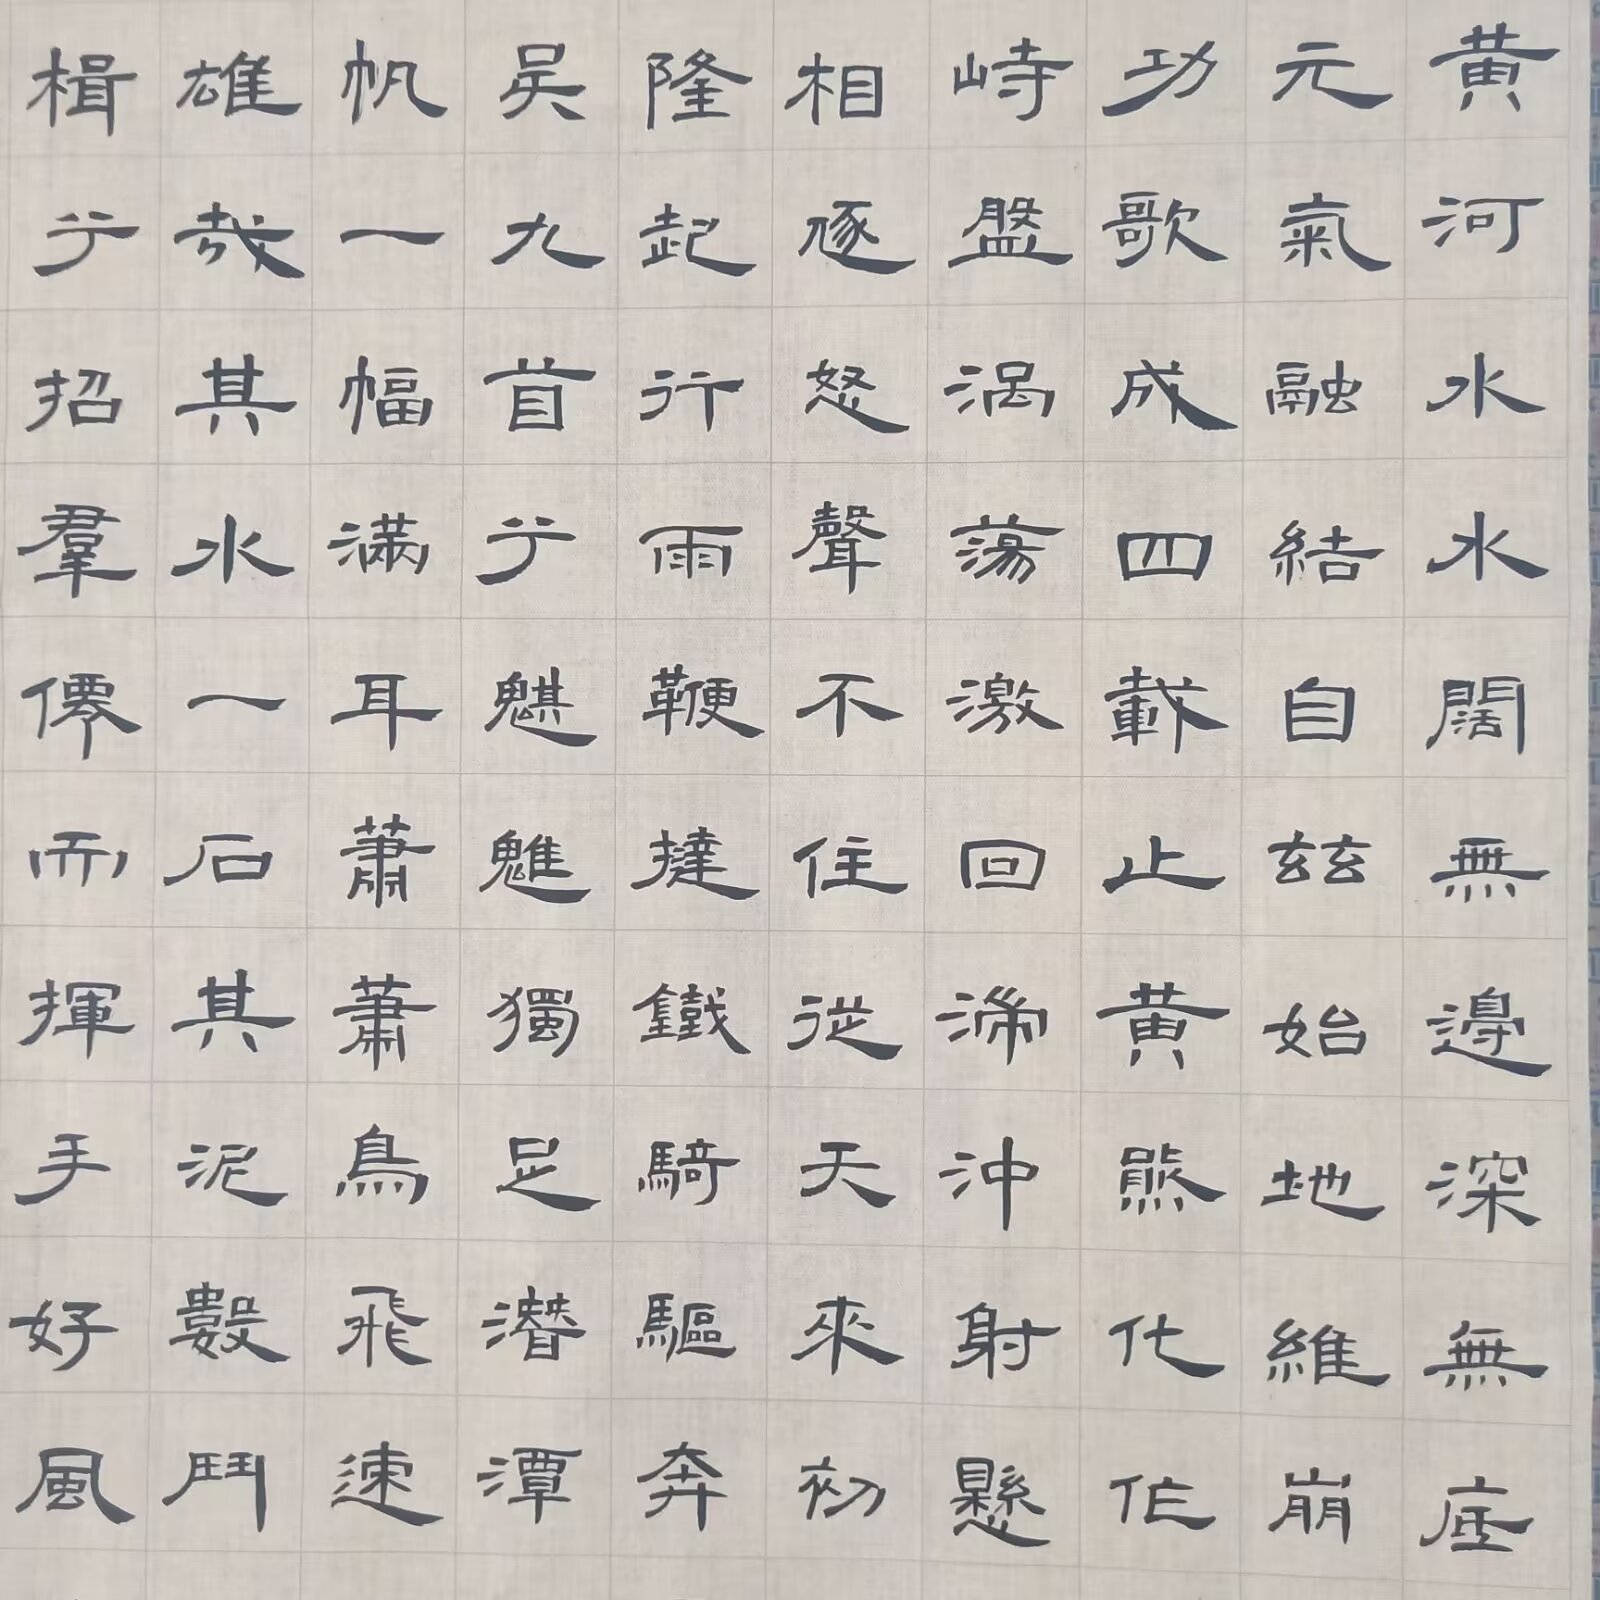 黄河水水闊無邊深無底
元氣融結自玆始地維崩
功歌成四載止黄熊化作
峙盤渦蕩激回渧沖射懸
相逐怒聲不住從天來初
隆起行雨鞭撻鐵騎驅奔
吴九首兮魌魋獨足潛潭
帆一幅滿耳蕭蕭鳥飛速
雄哉其水一石其泥數鬥
楫兮招羣僊而揮手好風